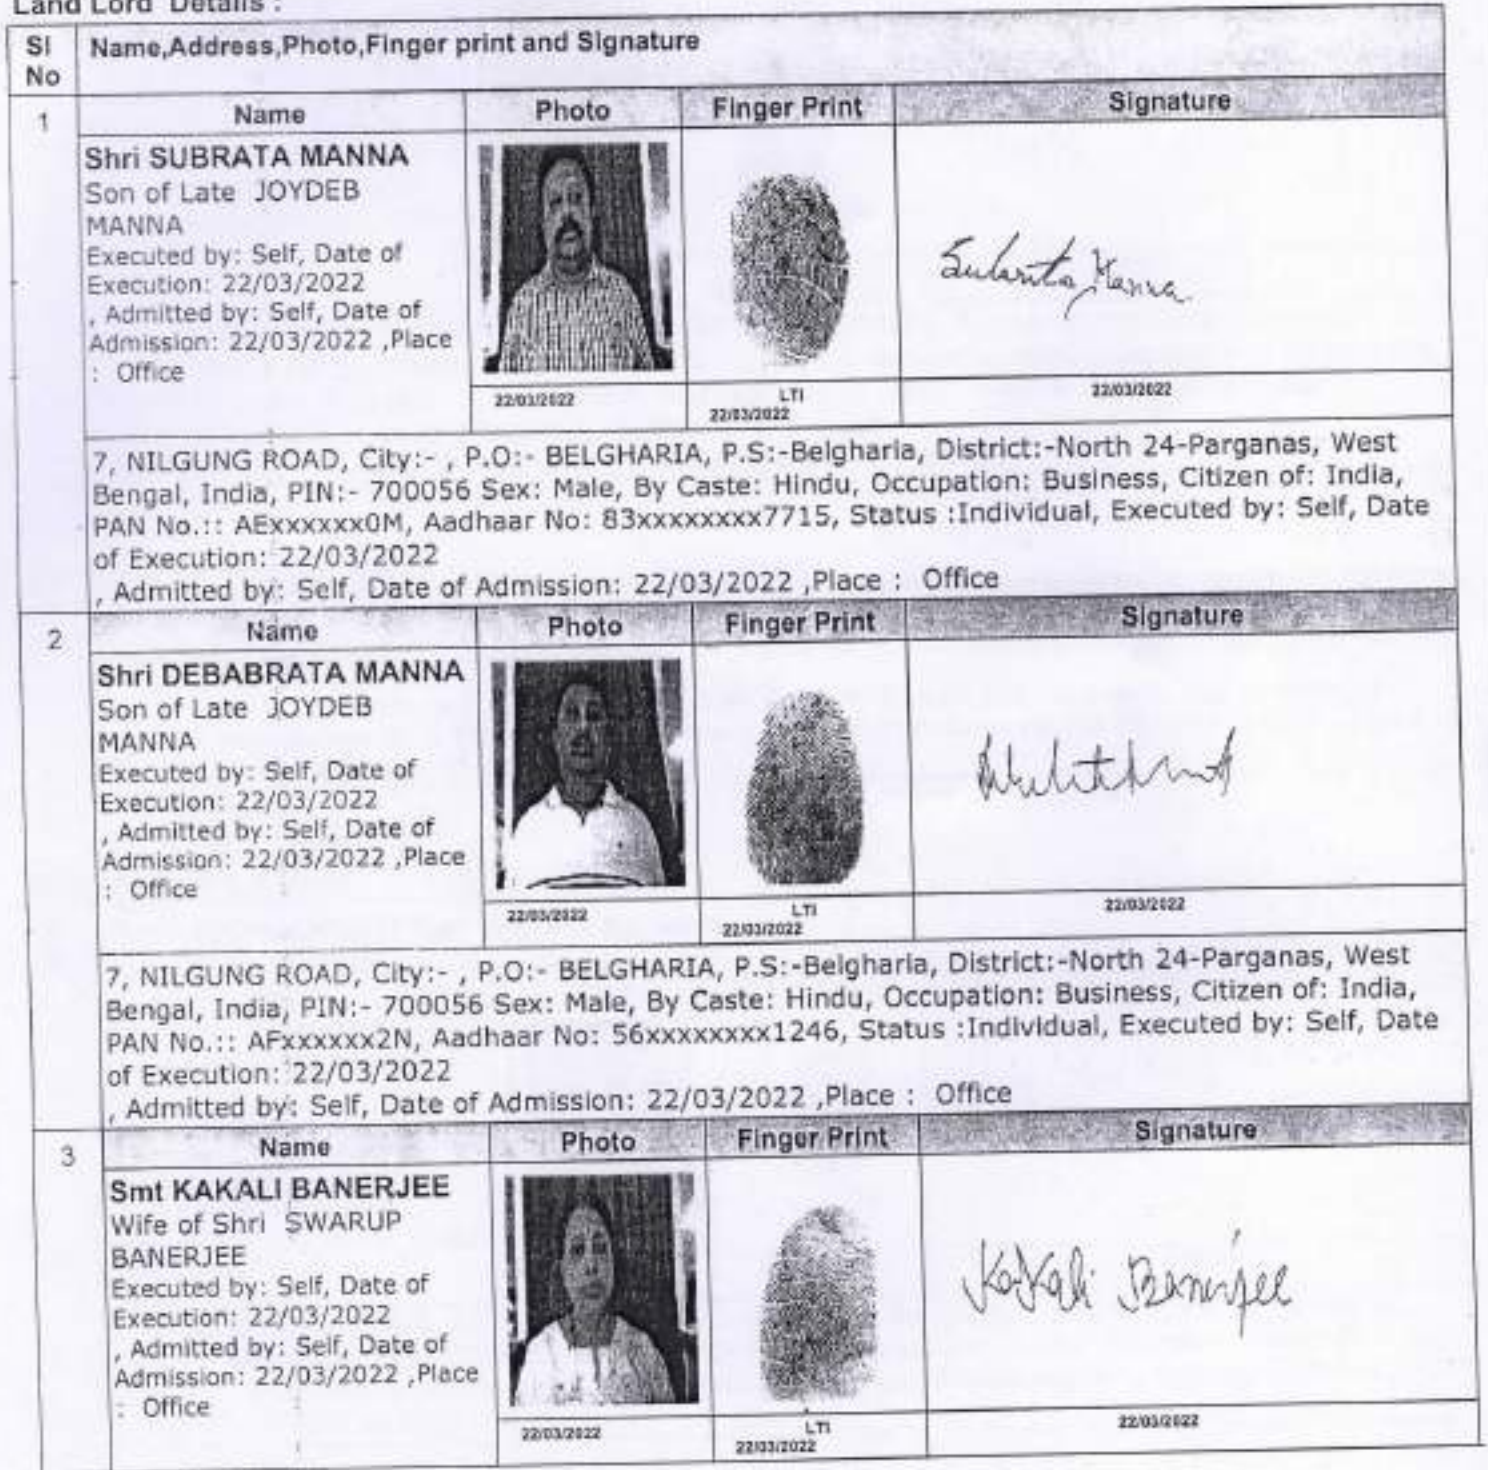 Land Lord Details :
Sl No Name,Address,Photo,Finger print and Signature
1
Name Photo Finger Print Signature
Shri SUBRATA MANNA
Son of Late JOYDEB
MANNA
Executed by: Self, Date of
Execution: 22/03/2022
, Admitted by: Self, Date of
Admission: 22/03/2022 ,Place
: Office
Subrata Manna
22/03/2022 LTI 22/03/2022 22/03/2022
7, NILGUNG ROAD, City:- , P.O:- BELGHARIA, P.S:-Belgharia, District:-North 24-Parganas, West
Bengal, India, PIN:- 700056 Sex: Male, By Caste: Hindu, Occupation: Business, Citizen of: India,
PAN No.:: AExxxxxx0M, Aadhaar No: 83xxxxxxxx7715, Status :Individual, Executed by: Self, Date
of Execution: 22/03/2022
, Admitted by: Self, Date of Admission: 22/03/2022 ,Place : Office
2
Name Photo Finger Print Signature
Shri DEBABRATA MANNA
Son of Late JOYDEB
MANNA
Executed by: Self, Date of
Execution: 22/03/2022
, Admitted by: Self, Date of
Admission: 22/03/2022 ,Place
: Office
22/03/2022 LTI 22/03/2022 22/03/2022
7, NILGUNG ROAD, City:- , P.O:- BELGHARIA, P.S:-Belgharia, District:-North 24-Parganas, West
Bengal, India, PIN:- 700056 Sex: Male, By Caste: Hindu, Occupation: Business, Citizen of: India,
PAN No.:: AFxxxxxx2N, Aadhaar No: 56xxxxxxxx1246, Status :Individual, Executed by: Self, Date
of Execution: 22/03/2022
, Admitted by: Self, Date of Admission: 22/03/2022 ,Place : Office
3
Name Photo Finger Print Signature
Smt KAKALI BANERJEE
Wife of Shri SWARUP
BANERJEE
Executed by: Self, Date of
Execution: 22/03/2022
, Admitted by: Self, Date of
Admission: 22/03/2022 ,Place
: Office
Kakali Banerjee
22/03/2022 LTI 22/03/2022 22/03/2022